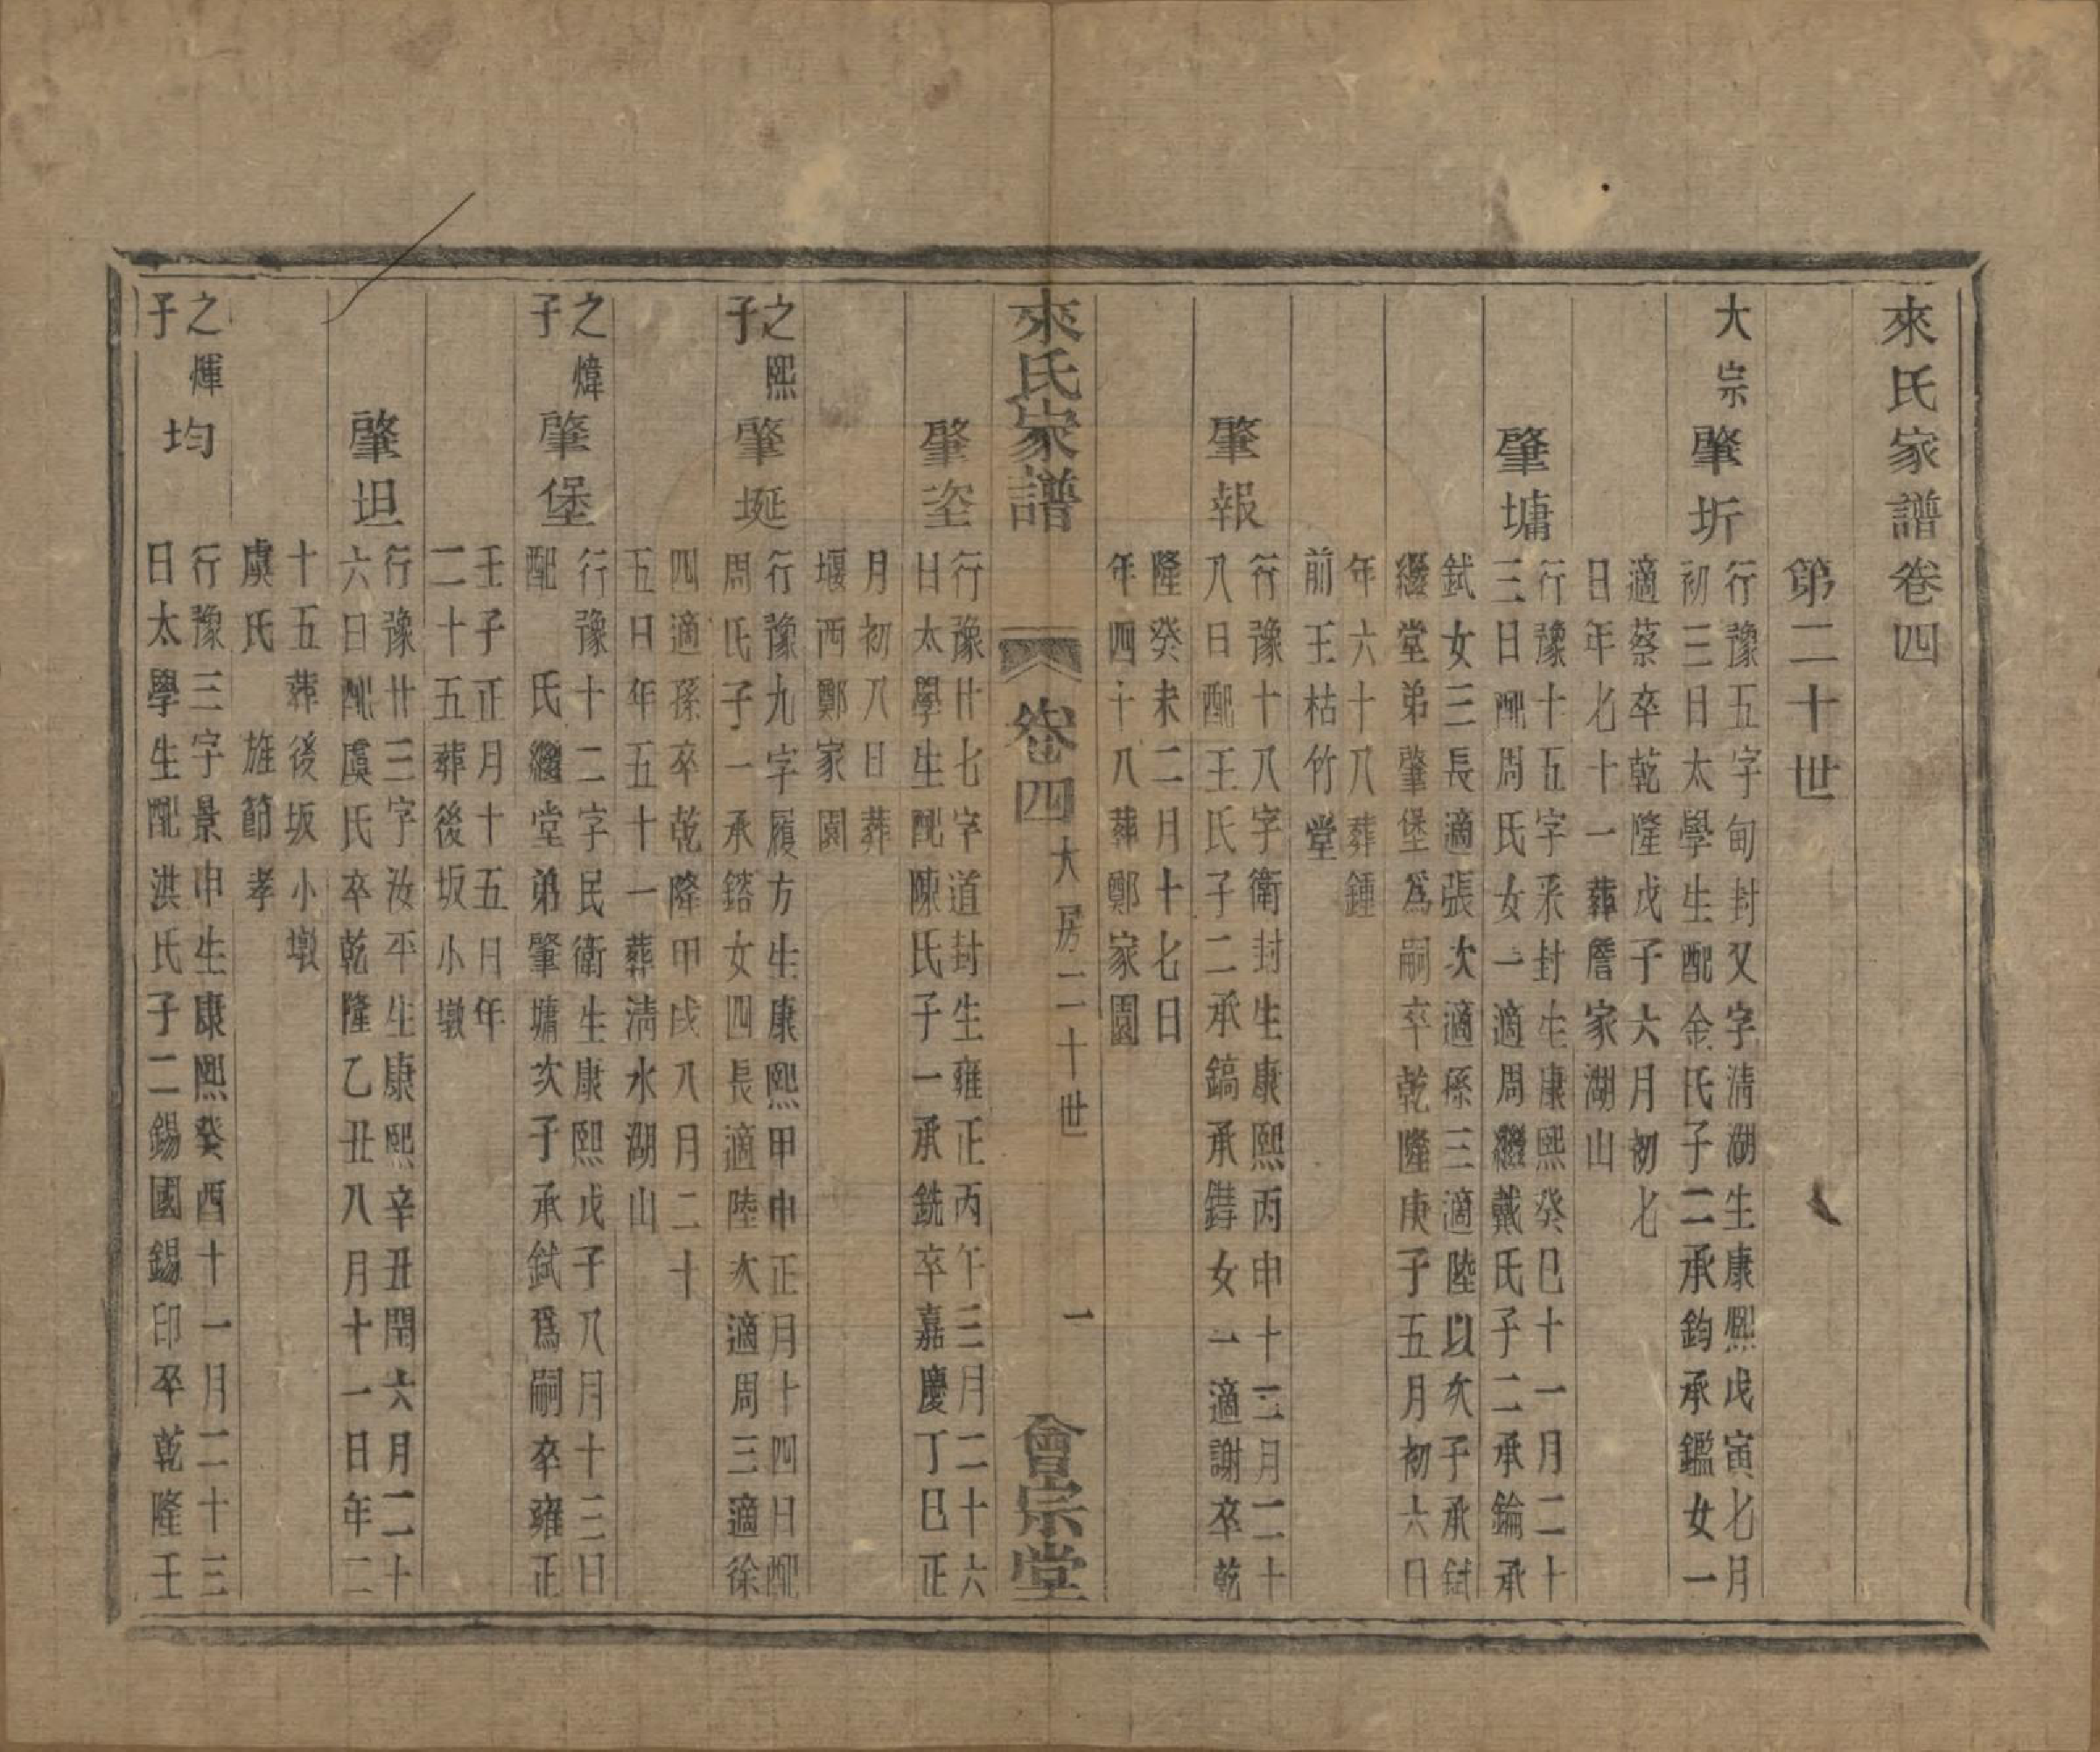 來氏家譜卷四
第二十世
大宗
肇圻
行豫五字甸封又字淸湖生康熙戊寅七月
初三日太學生配金氏子二承鈞承鑑女一
適蔡卒乾隆戊子六月初七
日年七十一葬詹家湖山
肇墉
行豫十五字釆封生康熙癸巳十一月二十
三日配周氏女一適周繼戴氏子二承錀承
鉽女三長適張次適孫三適陸以次子承鉽
繼堂弟肇堡爲嗣卒乾隆庚子五月初六日
年六十八葬鍾
前王枯竹堂
肇報
行豫十八字衛封生康熙丙申十二月二十
八日配王氏子二承鎬承鑄女一適謝卒乾
隆癸未二月十七日
年四十八葬鄭家園
來氏家譜
卷四
大房二十世
一
會宗堂
肇垐
行豫廿七字道封生雍正丙午三月二十六
日太學生配陳氏子一承銑卒嘉慶丁巳正
月初八日葬
堰西鄭家園
之熙
子
肇埏
行豫九字履方生康熙甲申正月十四日配
周氏子一承鎝女四長適陸次適周三適徐
四適孫卒乾隆甲戌八月二十
五日年五十一葬淸水湖山
之煒
子
肇堡
行豫十二字民衛生康熙戊子八月十三日
配 氏繼堂弟肇墉次子承鉽爲嗣卒雍正
壬子正月十五日年
二十五葬後坂小墩
肇坦
行豫廿三字汝平生康熙辛丑閏六月二十
六日配虞氏卒乾隆乙丑八月十一日年二
十五葬後坂小墩
虞氏 旌節孝
之煇
子
均
行豫三字景申生康熙癸酉十一月二十三
日太學生配洪氏子二錫國錫印卒乾隆壬